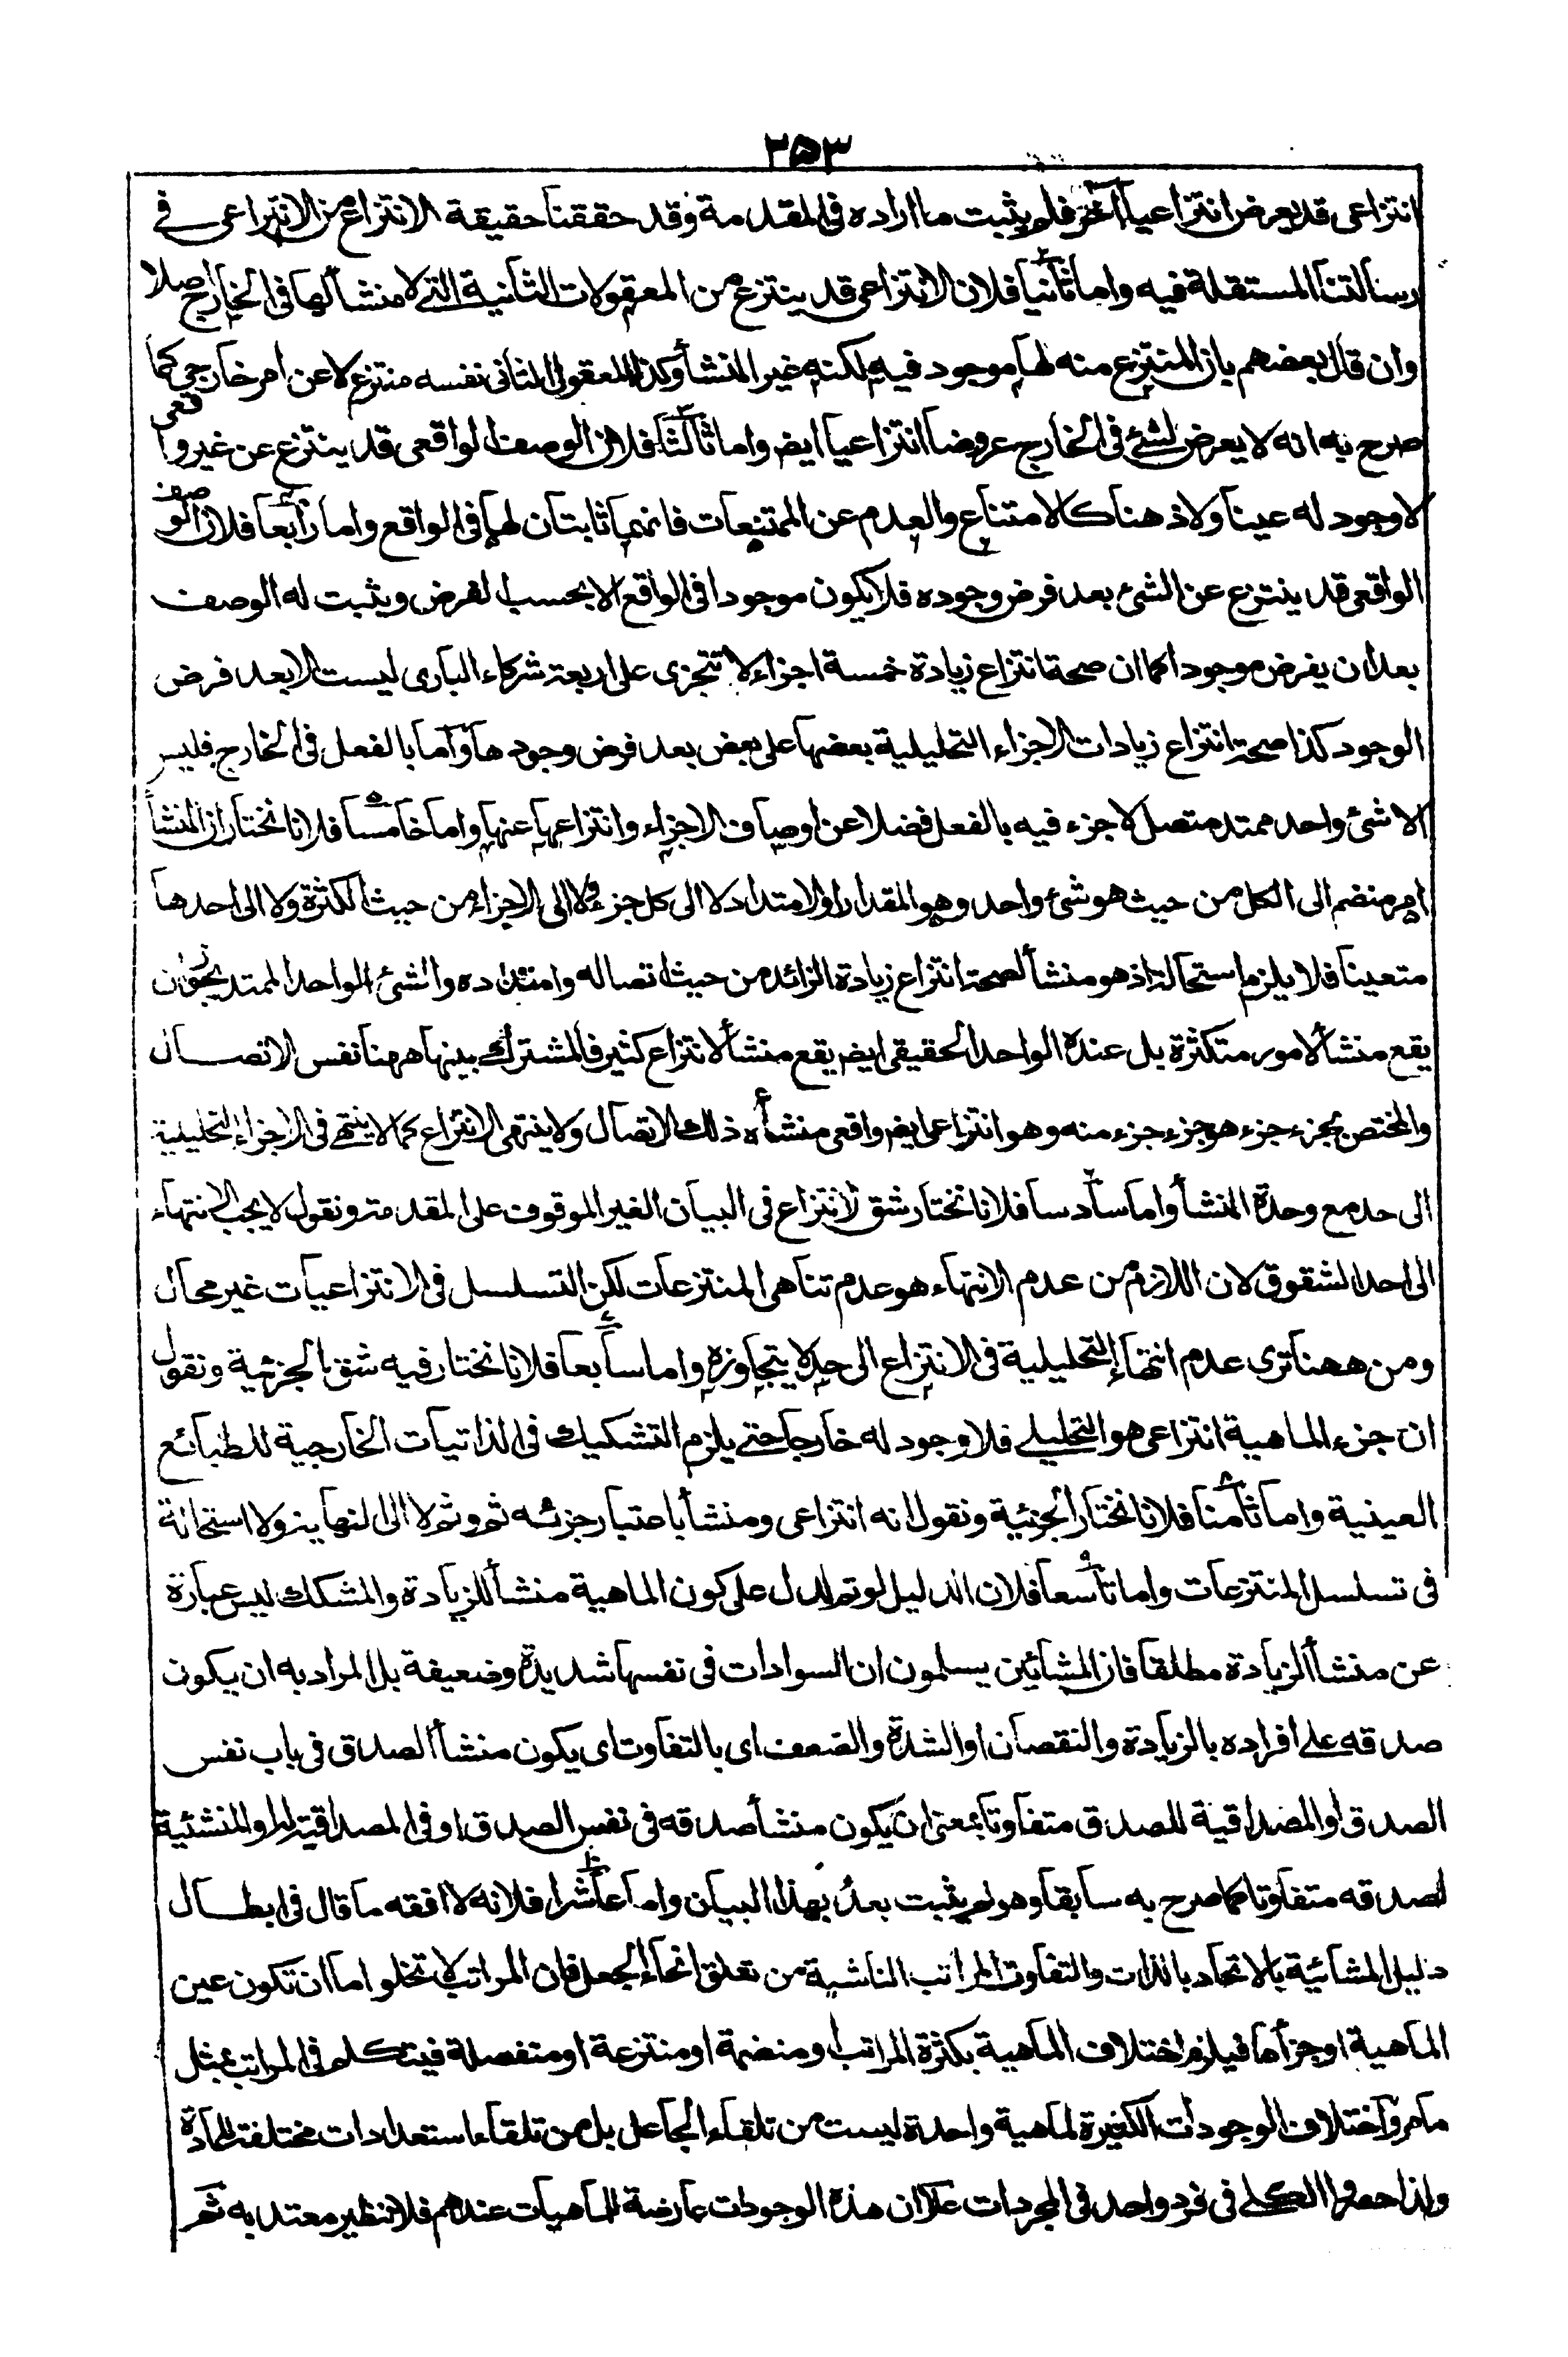 ٢٥٣
انتزاعى قد يعرض انتزاعيا آخر فلم يثبت ما اراده فى المقدمة وقد حققنا حقيقة الانتزاع من الانتزاعى فے
رسالتنا المستقلة فيه واما ثانيا فلان الانتزاعى قد ينتزع من المعقولات الثانية التے لا منشأ لها فى الخارج اصلا
وان قال بعضهم بان المنتزع منه لها موجود فيه لكنه غير المنشأ وكذا المعقول الثانى نفسه منتزع لا عن امر خارجي كما
صرح به انه لا يعرض لشئ فى الخارج عروضا انتزاعيا ايضا واما ثالثا فلان الوصف الواقعى قد ينتزع عن غير واقعى
لا وجود له عينا ولا ذهنا كالامتناع والعدم عن الممتنعات فانهما ثابتان لها فى الواقع واما رابعا فلان الوصف
الواقعى قد ينتزع عن الشئ بعد فرض وجوده فلا يكون موجودا فى الواقع الا بحسب الفرض ويثبت له الوصف
بعد ان يفرض موجودا كما ان صحة انتزاع زيادة خمسة اجزاء لا تتجزى على اربعة شركاء البارى ليست الا بعد فرض
الوجود كذا صحة انتزاع زيادات الاجزاء التحليلية بعضها على بعض بعد فرض وجودها واما بالفعل فى الخارج فليس
الا شئ واحد ممتد متصل لا جزء فيه بالفعل فضلا عن اوصاف الاجزاء وانتزاعها عنها واما خامسا فلانا نختار ان المنشأ
امر منضم الى الكل من حيث هو شئ واحد وهو المقدار او الامتداد لا الى كل جزء ولا الى الاجزاء من حيث الكثرة ولا الى احدها
متعينا فلا يلزم استحالة اذ هو منشأ لصحة انتزاع زيادة الزائد من حيث اتصاله وامتداده والشئ الواحد الممتد يجوز ان
يقع منشأ لامور متكثرة بل عنده الواحد الحقيقى ايضا يقع منشأ لانتزاع كثير فالمشترك بينها ههنا نفس الاتصال
والمختص بجزء جزء هو جزء جزء منه وهو انتزاعى ايضا واقعى منشأه ذلك الاتصال ولا ينتهى الانتزاع كما لا ينتهے فى الاجزاء التحليلية
الى حد مع وحدة المنشأ واما سادسا فلانا نختار شق الانتزاع فى البيان الغير الموقوف على المقدمة ونقول لا يجب الانتهاء
الى احد الشقوق لان اللازم من عدم الانتهاء هو عدم تناهى المنتزعات لكن التسلسل فى الانتزاعيات غير محال
ومن ههنا ترى عدم انتهاء التحليلية فى الانتزاع الى حد لا يتجاوزه واما سابعا فلانا نختار فيه شق الجزئية ونقول
ان جزء الماهية انتزاعى هو التحليلے فلا وجود له خارجا حتے يلزم التشكيك فى الذاتيات الخارجية للطبائع
العينية واما ثامنا فلانا نختار الجزئية ونقول انه انتزاعى ومنشأ باعتبار جزئه ثم وثم لا الى النهاية ولا استحالة
فى تسلسل المنتزعات واما تاسعا فلان الدليل لو تم لدل على كون الماهية منشأ للزيادة والمشكك ليس عبارة
عن منشأ الزيادة مطلقا فان المشائين يسلمون ان السوادات فى نفسها شديدة وضعيفة بل المراد به ان يكون
صدقه علے افراده بالزيادة والنقصان او الشدة والضعف اى بالتفاوت اى يكون منشأ الصدق فى باب نفس
الصدق او المصداقية للصدق متفاوتا بمعنى ان يكون منشأ صدقه فى نفس الصدق او فى المصداقية له او المنشئية
لصدقه متفاوتا كما صرح به سابقا وهو لم يثبت بعد بهذا البيان واما عاشرا فلانه لا افقه ما قال فى ابطال
دليل المشائية بالاتحاد بالذات والتفاوت المراتب الناشية من تعلق انحاء الجعل فان المراتب لا تخلو اما ان تكون عين
الماهية او جزأها فيلزم اختلاف الماهية بكثرة المراتب او منضمة او منتزعة او منفصلة فيتكلم فى المراتب بمثل
ما مر واختلاف الوجودات الكثيرة لماهية واحدة ليست من تلقاء الجاعل بل من تلقاء استعدادات مختلفة للمادة
ولذا حصروا الكلے فى فرد واحد فى المجردات علا ان هذه الوجودات عارضة للماهيات عندهم فلا نظير معتد به ثم